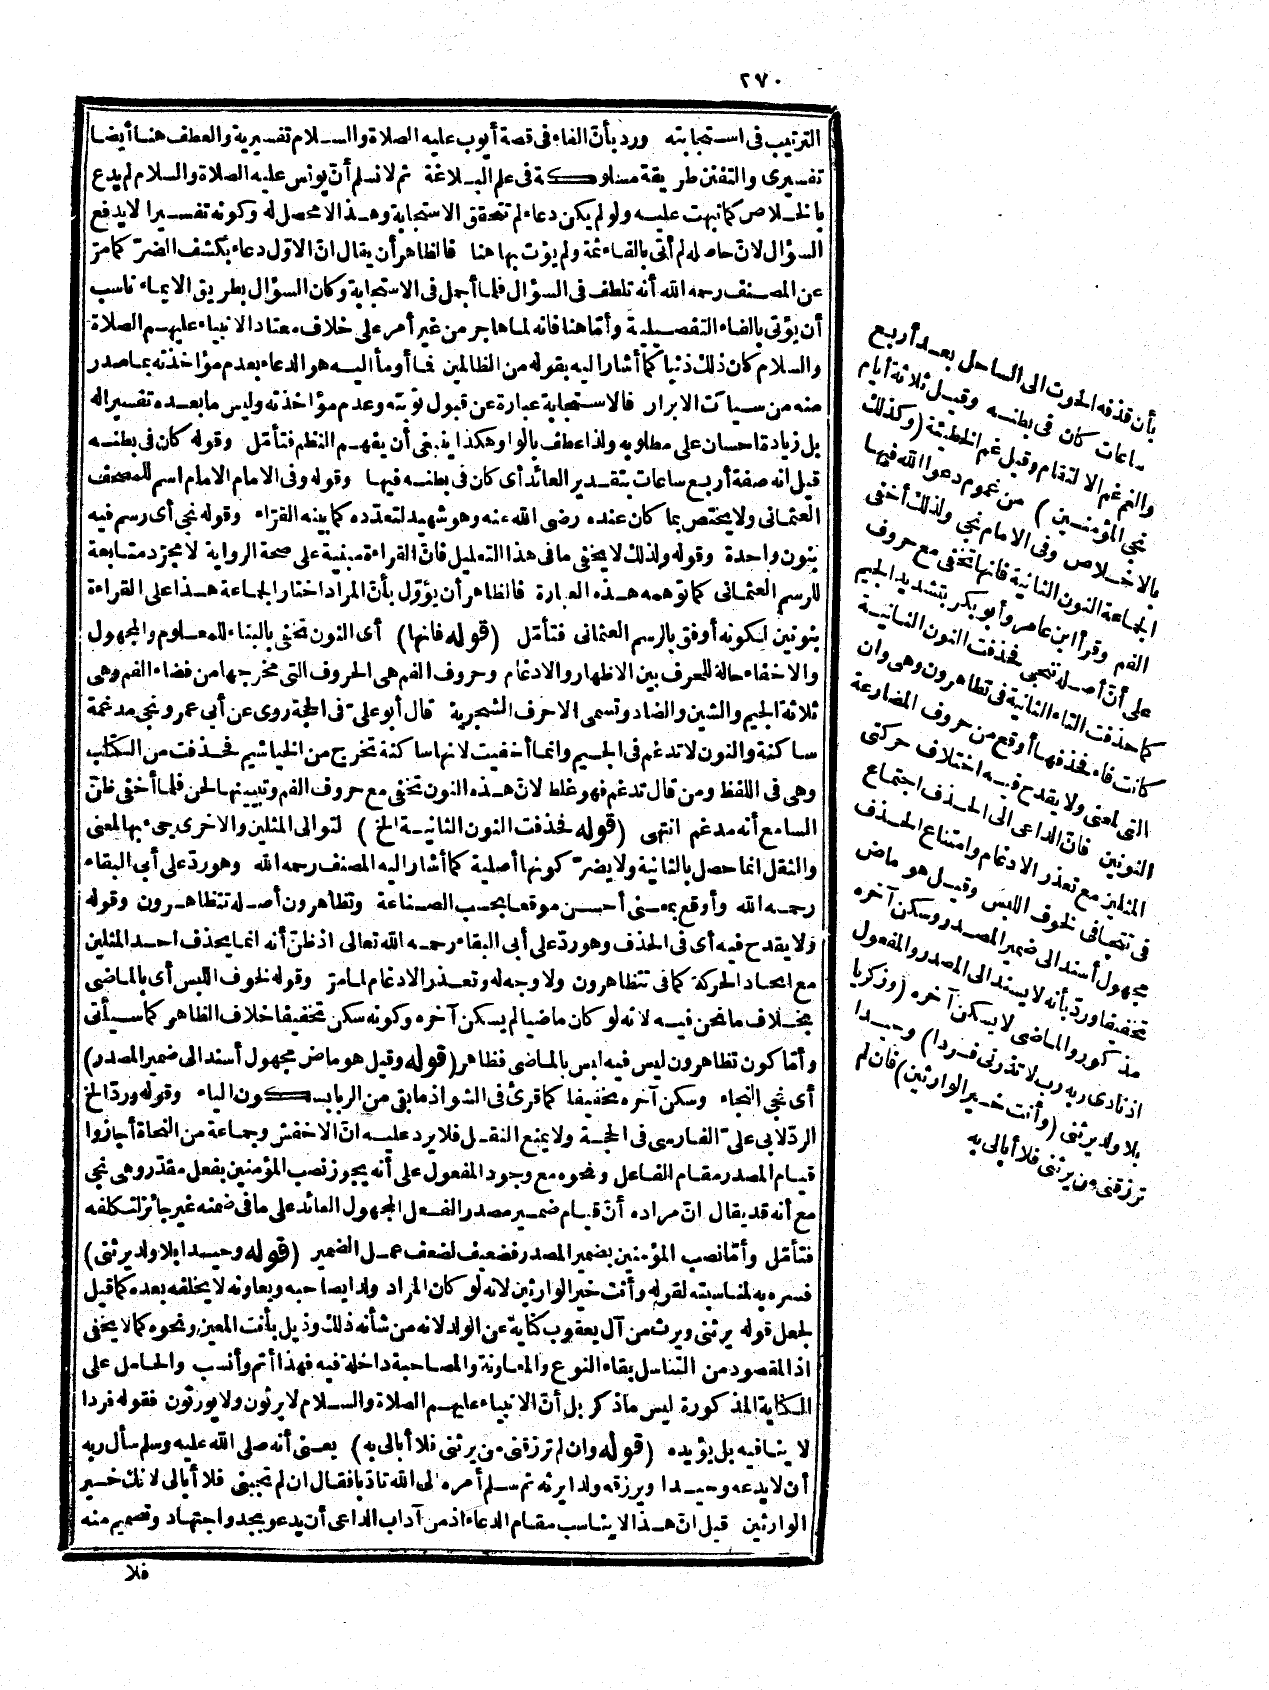 ٢٧٠
الترتيب فى استجابته ورد بأن الفاء فى قصة أيوب عليه الصلاة والسلام تفسيرية والعطف هنا أيضا
تفسيرى والتفنن طريقة مسلوكة فى علم البلاغة ثم لا نسلم أنّ يونس عليه الصلاة والسلام لم يدع
بالخلاص كما نبهت عليه ولو لم يكن دعاء لم تتحقق الاستجابة وهذا لا محصل له وكونه تفسيرا لا يدفع
السؤال لانّ حاصله لم أتى بالفاء ثمة ولم يؤت بها هنا فالظاهر أن يقال انّ الاوّل دعاء بكشف الضرّ كما مرّ
عن المصنف رحمه الله أنه تلطف فى السؤال فلما أجمل فى الاستجابة وكان السؤال بطريق الايماء ناسب
أن يؤتى بالفاء التفصيلية وأمّا هنا فانه لما هاجر من غير أمر على خلاف معتاد الانبياء عليهم الصلاة
والسلام كان ذلك ذنبا كما أشار اليه بقوله من الظالمين فما أومأ اليه هو الدعاء بعدم مؤاخذته بما صدر
منه من سيآت الابرار فالاستجابة عبارة عن قبول توبته وعدم مؤاخذته وليس ما بعده تفسيرا له
بل زيادة احسان على مطلوبه ولذا عطف بالواو هكذا ينبغى أن يفهم النظم فتأمّل وقوله كان فى بطنه
قيل انه صفة أربع ساعات بتقدير العائد أى كان فى بطنه فيها وقوله وفى الامام الامام اسم للمصحف
العثمانى ولا يختص بما كان عنده رضى الله عنه وهو شهيد لتعدّده كما بينه القرّاء وقوله نجى أى رسم فيه
بنون واحدة وقوله ولذلك لا يخفى ما فى هذا التعليل فانّ القراءة مبنية على صحة الرواية لا مجرّد متابعة
للرسم العثمانى كما توهمه هذه العبارة فالظاهر أن يؤوّل بأنّ المراد اختار الجماعة هذا على القراءة
بنونين لكونه أوفق بالرسم العثمانى فتأمّل (قوله فانها) أى النون تخفى بالبناء للمعلوم والمجهول
والاخفاء حالة للحرف بين الاظهار والادغام وحروف الفم هى الحروف التى مخرجها من فضاء الفم وهى
ثلاثة الجيم والشين والضاد وتسمى الاحرف الشجرية قال أبو علىّ فى الحجة روى عن أبى عمرو نجى مدغمة
ساكنة والنون لا تدغم فى الجيم وانما أخفيت لانها ساكنة تخرج من الخياشيم فحذفت من الكتاب
وهى فى اللفظ ومن قال تدغم فهو غلط لانّ هذه النون تخفى مع حروف الفم وتبيينها لحن فلما أخفى ظنّ
السامع أنه مدغم انتهى (قوله فحذفت النون الثانية الخ) لتوالى المثلين والاخرى جىء بها لمعنى
والثقل انما حصل بالثانية ولا يضرّ كونها أصلية كما أشار اليه المصنف رحمه الله وهو ردّ على أبى البقاء
رحمه الله وأوقع بمعنى أحسن موقعا بحسب الصناعة وتظاهرون أصله تتظاهرون وقوله
ولا يقدح فيه أى فى الحذف وهو ردّ على أبى البقاء رحمه الله تعالى اذ ظنّ أنه انما يحذف احد المثلين
مع اتحاد الحركة كما فى تتظاهرون ولا وجه له وتعذر الادغام لما مرّ وقوله لخوف اللبس أى بالماضى
بخلاف ما نحن فيه لانه لو كان ماضيا لم يسكن آخره وكونه سكن تخفيفا خلاف الظاهر كما سيأتى
وأمّا كون تظاهرون ليس فيه لبس بالماضى فظاهر (قوله وقيل هو ماض مجهول أسند الى ضمير المصدر)
أى نجى النجاء وسكن آخره تخفيفا كما قرئ فى الشواذ ما بقى من الربا بسكون الياء وقوله وردّ الخ
الردّ لابى علىّ الفارسى فى الحجة ولا يمنع النقل فلا يرد عليه انّ الاخفش وجماعة من النحاة أجازوا
قيام المصدر مقام الفاعل ونحوه مع وجود المفعول على أنه يجوز نصب المؤمنين بفعل مقدّر وهى نجى
مع أنه قد يقال انّ مراده أنّ قيام ضمير مصدر الفعل المجهول العائد على ما فى ضمنه غير جائز لتكلفه
فتأمّل وأمّا نصب المؤمنين بضمير المصدر فضعيف لضعف عمل الضمير (قوله وحيدا بلا ولد يرثنى)
فسره به لمناسبته لقوله وأنت خير الوارثين لانه لو كان المراد ولدا يصاحبه ويعاونه لا يخلفه بعده كما قيل
لجعل قوله يرثنى ويرث من آل يعقوب كناية عن الولد لانه من شأنه ذلك وذيل بأنت المعين ونحوه كما لا يخفى
اذ المقصود من التناسل بقاء النوع والمعاونة والمصاحبة داخلة فيه فهذا أتم وأنسب والحامل على
الكناية المذكورة ليس ما ذكر بل أنّ الانبياء عليهم الصلاة والسلام لا يرثون ولا يورثون فقوله فردا
لا ينافيه بل يؤيده (قوله وان لم ترزقنى من يرثنى فلا أبالى به) يعنى أنه صلى الله عليه وسلم سأل ربه
أن لا يدعه وحيدا ويرزقه ولدا يرثه ثم سلم أمره الى الله تأدّبا فقال ان لم تجبنى فلا أبالى لانك خير
الوارثين قيل انّ هذا لا يناسب مقام الدعاء اذ من آداب الداعى أن يدعو بجدّ واجتهاد وتصميم منه
فلا
بأن قذفه الحوت الى الساحل بعد أربع
ساعات كان فى بطنه وقيل ثلاثة أيام
والغم غم الالتقام وقيل غم الخطيئة (وكذلك
ننجى المؤمنين) من غموم دعوا الله فيها
بالاخلاص وفى الامام نجى ولذلك أخفى
الجماعة النون الثانية فانها تخفى مع حروف
الفم وقرأ ابن عامر وأبو بكر بتشديد الجيم
على أنّ أصله ننجى فحذفت النون الثانية
كما حذفت التاء الثانية فى تظاهرون وهى وان
كانت فاء فحذفها أوقع من حروف المضارعة
التى لمعنى ولا يقدح فيه اختلاف حركتى
النونين فانّ الداعى الى الحذف اجتماع
المثلين مع تعذر الادغام وامتناع الحذف
فى تتجافى لخوف اللبس وقيل هو ماض
مجهول أسند الى ضمير المصدر وسكن آخره
تخفيفا وردّ بأنه لا يسند الى المصدر والمفعول
مذكور والماضى لا يسكن آخره (وزكريا
اذ نادى ربه رب لا تذرنى فردا) وحيدا
بلا ولد يرثنى (وأنت خير الوارثين) فان لم
ترزقنى من يرثنى فلا أبالى به